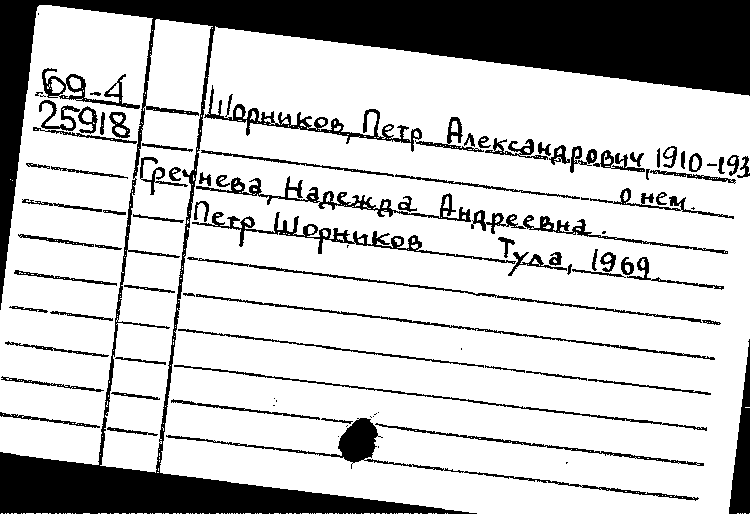 Б9-4
25918
Шорников, Петр Александрович, 1910-193
о нем.
Гречнева, Надежда Андреевна.
Петр Шорников Тула, 1969.